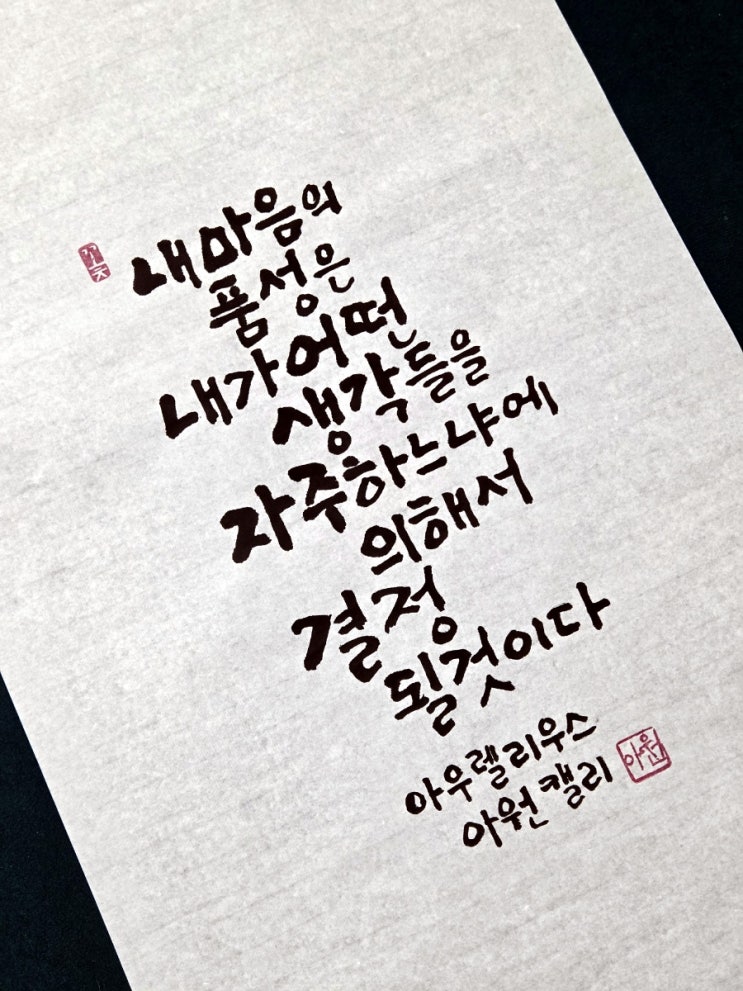 내마음의
품성은
내가어떤
생각들을
자주하느냐에
의해서
결정
될것이다
아우렐리우스
아원캘리
아원